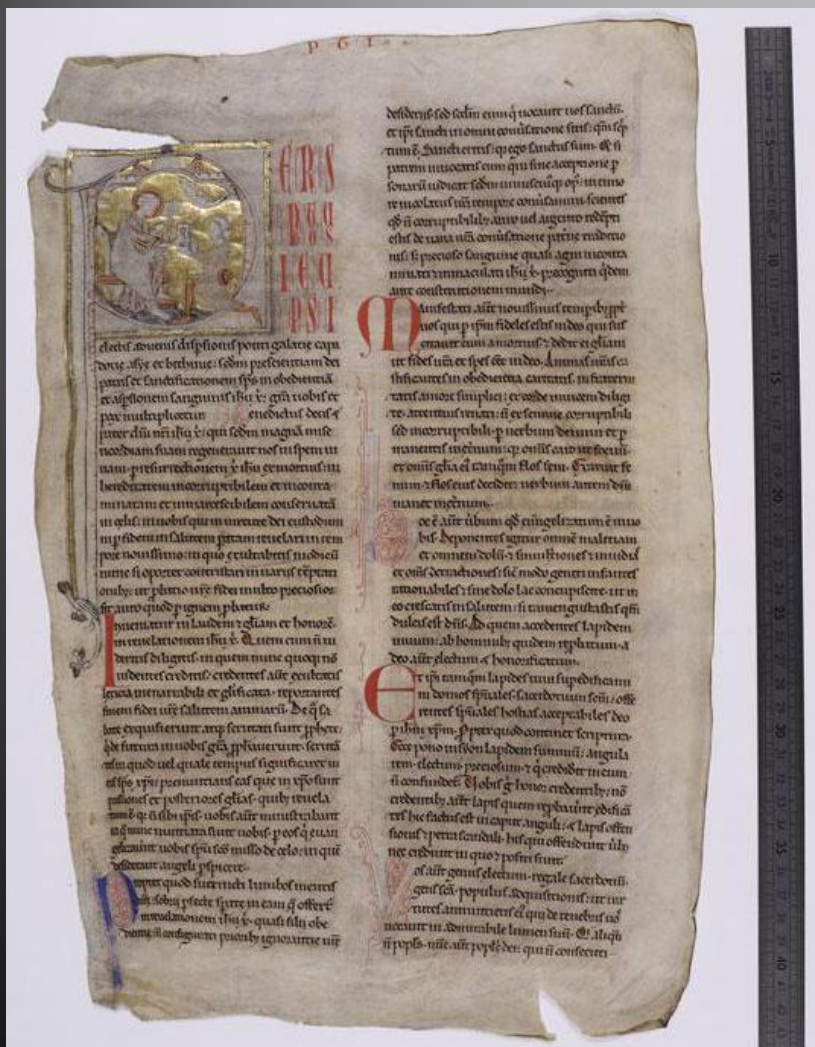 electis advenis dispsionis ponti galatie capa
docie asye et bethinie: sedm prescientiam dei
patris et sanctificationem sps in obedientiā
et aspsionem sanguinis ihu x. grā vobis et
pax multiplicetur Benedictus deus et
pater dni nri ihu x. qui sedm magnā mise
ricordiam suam regeneravit nos in spem vi
vam. p resurrectionem x ihu ex mortuis. in
hereditatem incorruptibilem et inconta
minatam et inmarcesibilem conservatā
in celis. in vobis qui in virtute dei custodimi
ni p fidem in salutem paratam revelari in tem
pore novissimo. in quo exultabitis modicū
nunc si oportet contristari in variis
ut pbatio vre fidei multo preciosior
sit auro quod p ignem pbatur.
Inveniatur in laudem et gliam et honorē.
in revelationem ihu x. Quem cum n vi
deritis diligitis. in quem nunc quoq nō
videntes creditis. credentes aut exultatis
leticia inenarrabili et glificata. reportantes
finem fidei vre salutem animarū. De q sa
lute exquisierunt atq scrutati sunt pphete.
q de futura in vobis grā pphaverunt. scrutā
tes in quod vel quale tempus significaret in
eis sps xpi. prenuntians eas que in xpo sunt
passiones et posteriores glias. quib revela
tum ē qr n sibi ipsis. vobis aut ministrabant
ea q nunc nuntiata sunt vobis. p eos q evan
gelizaverunt vobis spu sco misso de celo. in quē
desiderant angeli pspicere.
Propter quod succincti lumbos mentis
vre sobrii pfecte sperate in eam q offert
in revelationem ihu x. quasi filii obe
dientie n configurati priorib ignorantie vre
desideriis. sed sedm eum q vocavit vos sanctū.
et ipsi sancti in omni conversatione sitis. qm scp
tum ē. Sancti eritis. qr ego sanctus sum. Et si
patrem invocatis eum qui sine acceptione p
sonarū iudicat sedm uniuscuiq op. in timo
re incolatus vri tempore conversamini. scientes
qd n corruptibilib auro vel argento redēpti
estis de vana vra conversatione patrie traditio
nis. s precioso sanguine quasi agni inconta
minati et inmaculati ihu x. precogniti qdem
ante constitutionem mundi.
Manifestati aut novissimis temporib ppt
vos qui p ipm fideles estis in deo qui sus
citavit eum a mortuis. et dedit ei gliam
ut fides vra et spes esset in deo. Animas vras ca
stificantes in obedientia caritatis. in fraterni
tatis amore simplici. ex corde invicem diligi
te. attentius renati. n ex semine corruptibili
sed incorruptibili. p verbum dei vivi et p
manentis in eternum. qr omis caro ut fenum.
et omis glia ei tamqm flos feni. Exaruit fe
num. et flos eius decidit. verbum autem dni
manet in eternum.
Hoc ē aut vbum qd evangelizatum ē in vo
bis. Deponentes igitur omnē malitiam
et omnem dolū. et simulationes et invidias
et omis detractiones. sic modo geniti infantes
rationabiles. sine dolo lac concupiscite. ut in
eo crescatis in salutem. si tamen gustastis qm
dulcis est dns. Ad quem accedentes lapidem
vivum. ab hominib quidem repbatum. a
deo aut electum et honorificatum.
Et ipsi tamqm lapides vivi supedificami
ni domos spuales. sacerdotium scm. offe
rentes spuales hostias acceptabiles deo
p ihm xpm. Propter quod continet scriptura.
Ecce pono in syon lapidem summū. angula
rem. electum. preciosum. et q crediderit in eum
n confundet. Vobis g honor credentib. nō
credentib aut lapis quem repbaverunt edificā
tes hic factus est in caput anguli. et lapis offen
sionis et petra scandali. his qui offendunt vbo
nec credunt in quo et positi sunt.
Vos aut genus electum. regale sacerdotiū.
gens scā. populus adquisitionis. ut vir
tutes annuntietis ei qui de tenebris vos
vocavit in admirabile lumen suū. Qui aliqn
n popls. nunc aut popls dei. qui n consecuti